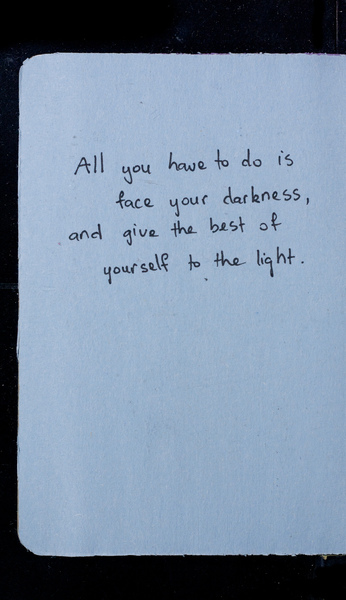 All you have to do is
face your darkness,
and give the best of
yourself to the light.